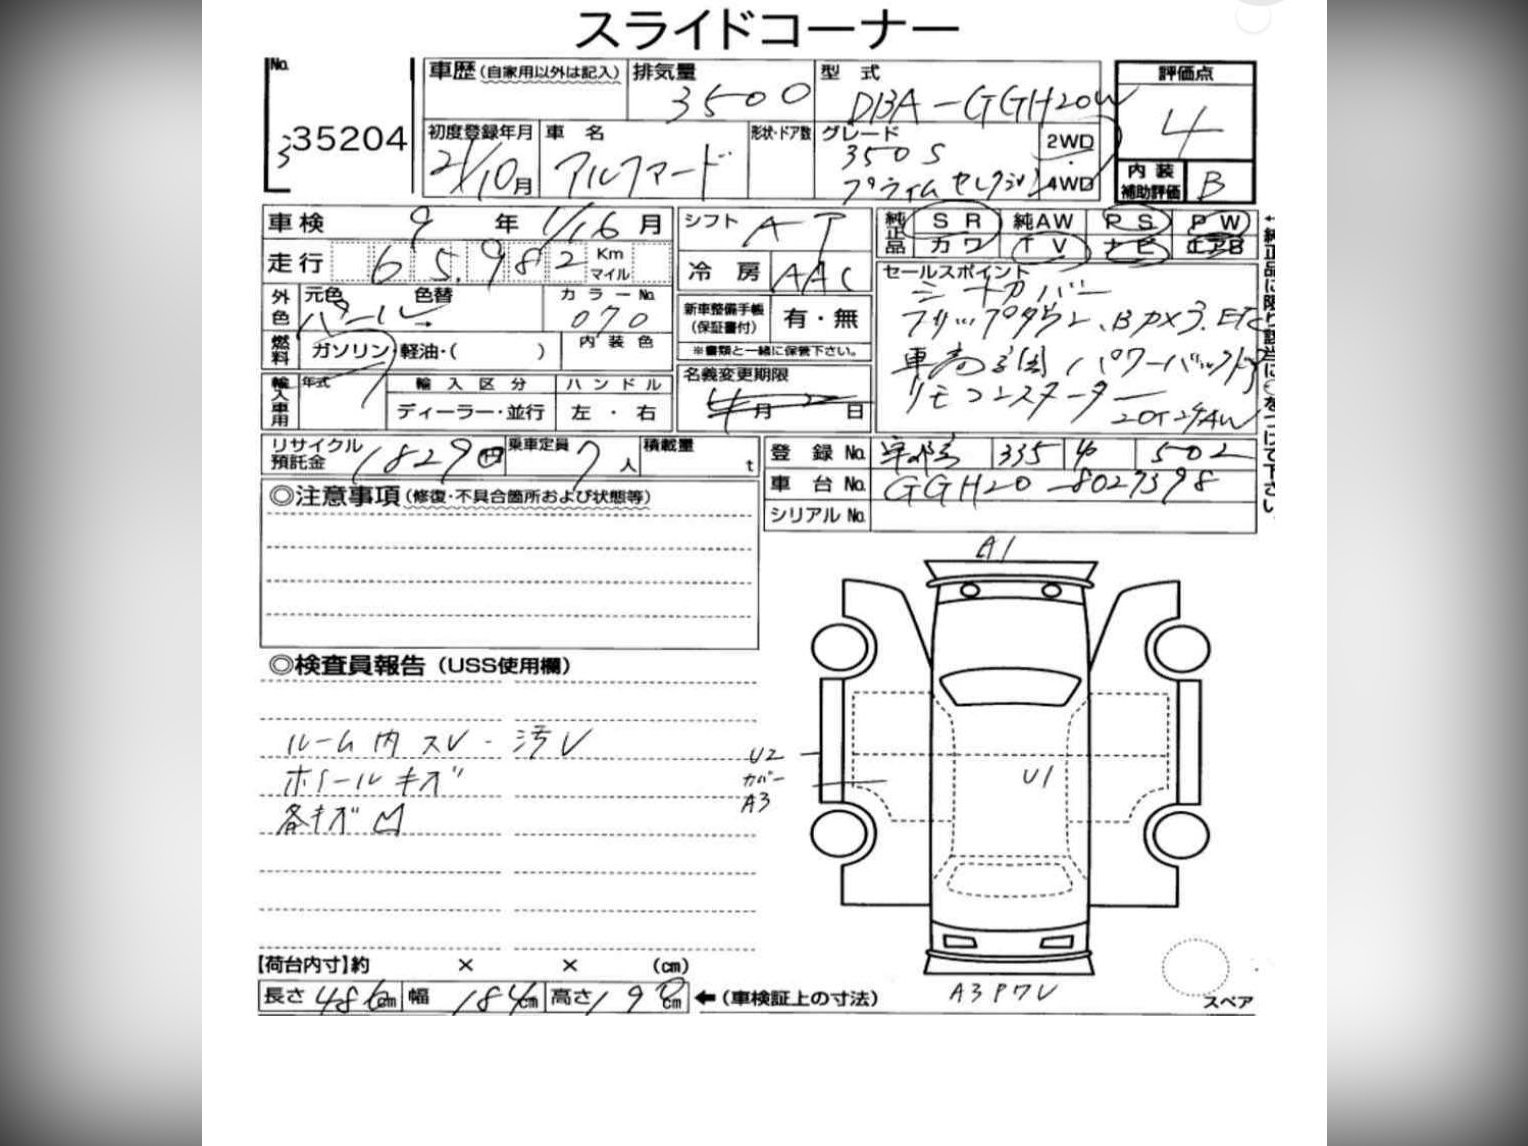 スライドコーナー
No. 35204
車歴(自家用以外は記入) 排気量 3500 型式 DBA-GGH20W 評価点 4
初度登録年月 21/10月 車名 アルファード 形状・ドア数 グレード 350S プライムセレクション 2WD・4WD
内装補助評価 B
車検 9年 1/16月 シフト AT 純正品 SR 純AW PS PW
カワ TV ナビ エアB
走行 65,982 Km マイル 冷房 AAC
外色 元色 パール 色替 カラーNo. 070
新車整備手帳(保証書付) 有・無
※書類と一緒に保管下さい。
燃料 ガソリン・軽油・( ) 内装色
輸入車用 年式 輸入区分 ハンドル
ディーラー・並行 左・右
名義変更期限 月 日
セールスポイント
シートカバー
フリップダウン、
リモコンスターター
リサイクル預託金 18290円 乗車定員 7人 積載量 t
登録No. 335 502
車台No. GGH20-8027398
シリアルNo.
←純正品に限り該当に○をつけて下さい。
◎注意事項(修復・不具合箇所および状態等)
◎検査員報告(USS使用欄)
ルーム内スレ・汚レ
ホイールキズ
各キズ凹
A1
U2
カバー
A3
U1
A3Pワレ
スペア
【荷台内寸】約 × × (cm)
長さ 486cm 幅 184cm 高さ 190cm ←(車検証上の寸法)